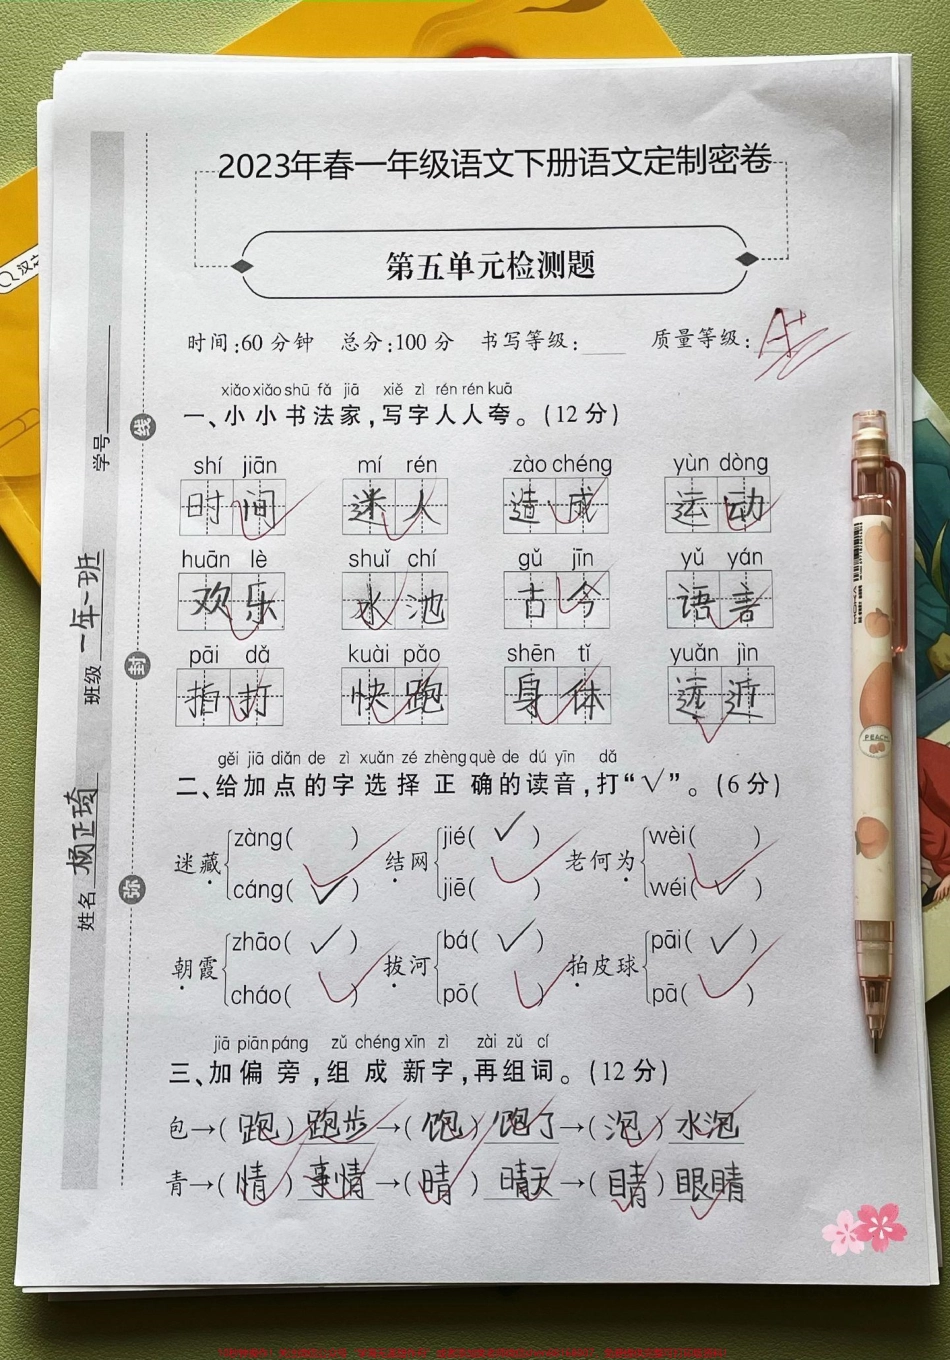 2023年春一年级语文下册语文定制密卷
第五单元检测题
时间:60分钟 总分:100分 书写等级: 质量等级: A+
xiǎo xiǎo shū fǎ jiā xiě zì rén rén kuā
一、小小书法家,写字人人夸。(12分)
shí jiān mí rén zào chéng yùn dòng
时间 迷人 造成 运动
huān lè shuǐ chí gǔ jīn yǔ yán
欢乐 水池 古今 语言
pāi dǎ kuài pǎo shēn tǐ yuǎn jìn
拍打 快跑 身体 远近
gěi jiā diǎn de zì xuǎn zé zhèng què de dú yīn dǎ
二、给加点的字选择正确的读音,打“√”。(6分)
迷藏 zàng( ) cáng(√) 结网 jié(√) jiē( ) 老何为 wèi( ) wéi(√)
朝霞 zhāo(√) cháo( ) 拔河 bá(√) pō( ) 拍皮球 pāi(√) pā( )
jiā piān páng zǔ chéng xīn zì zài zǔ cí
三、加偏旁,组成新字,再组词。(12分)
包→(跑)跑步→(饱)饱了→(泡)水泡
青→(情)事情→(晴)晴天→(睛)眼睛
学号
班级 一年一班
姓名 杨正琦
线
封
弥
PEACH